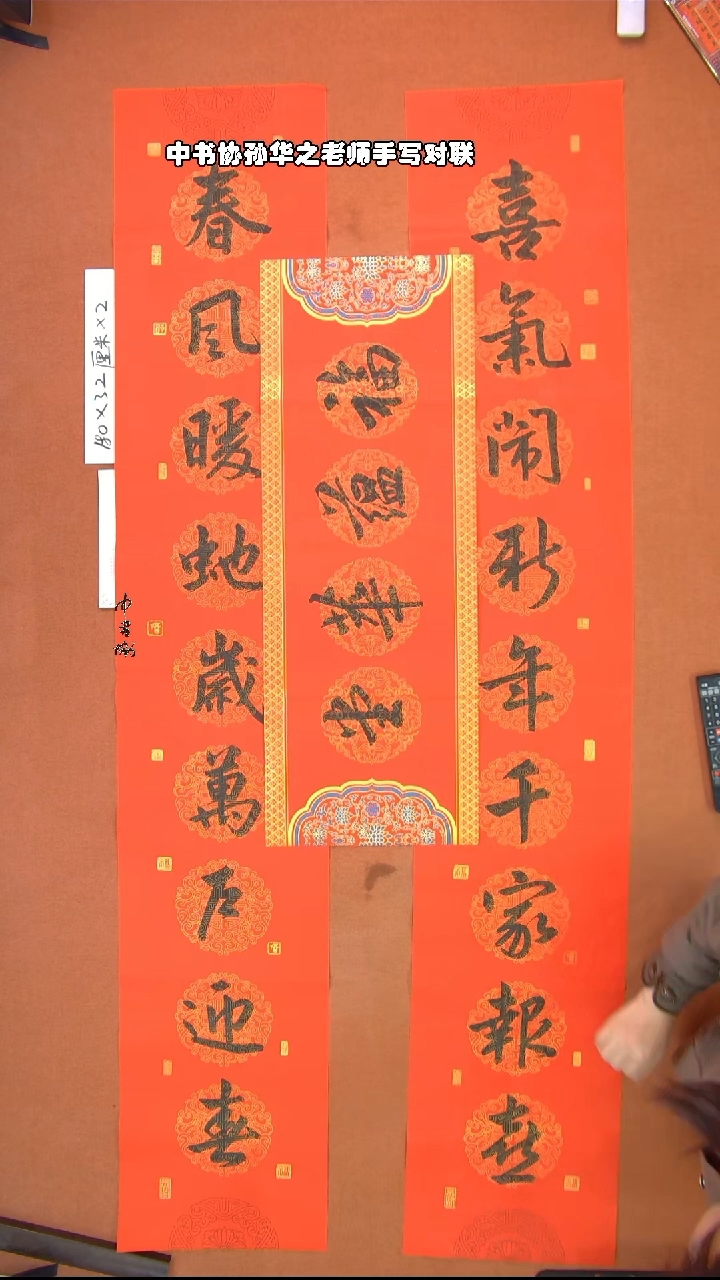 中书协孙华之老师手写对联
喜氣闹新年千家報喜
春风暖虵歲萬户迎春
福緼華堂
180×32厘米×2